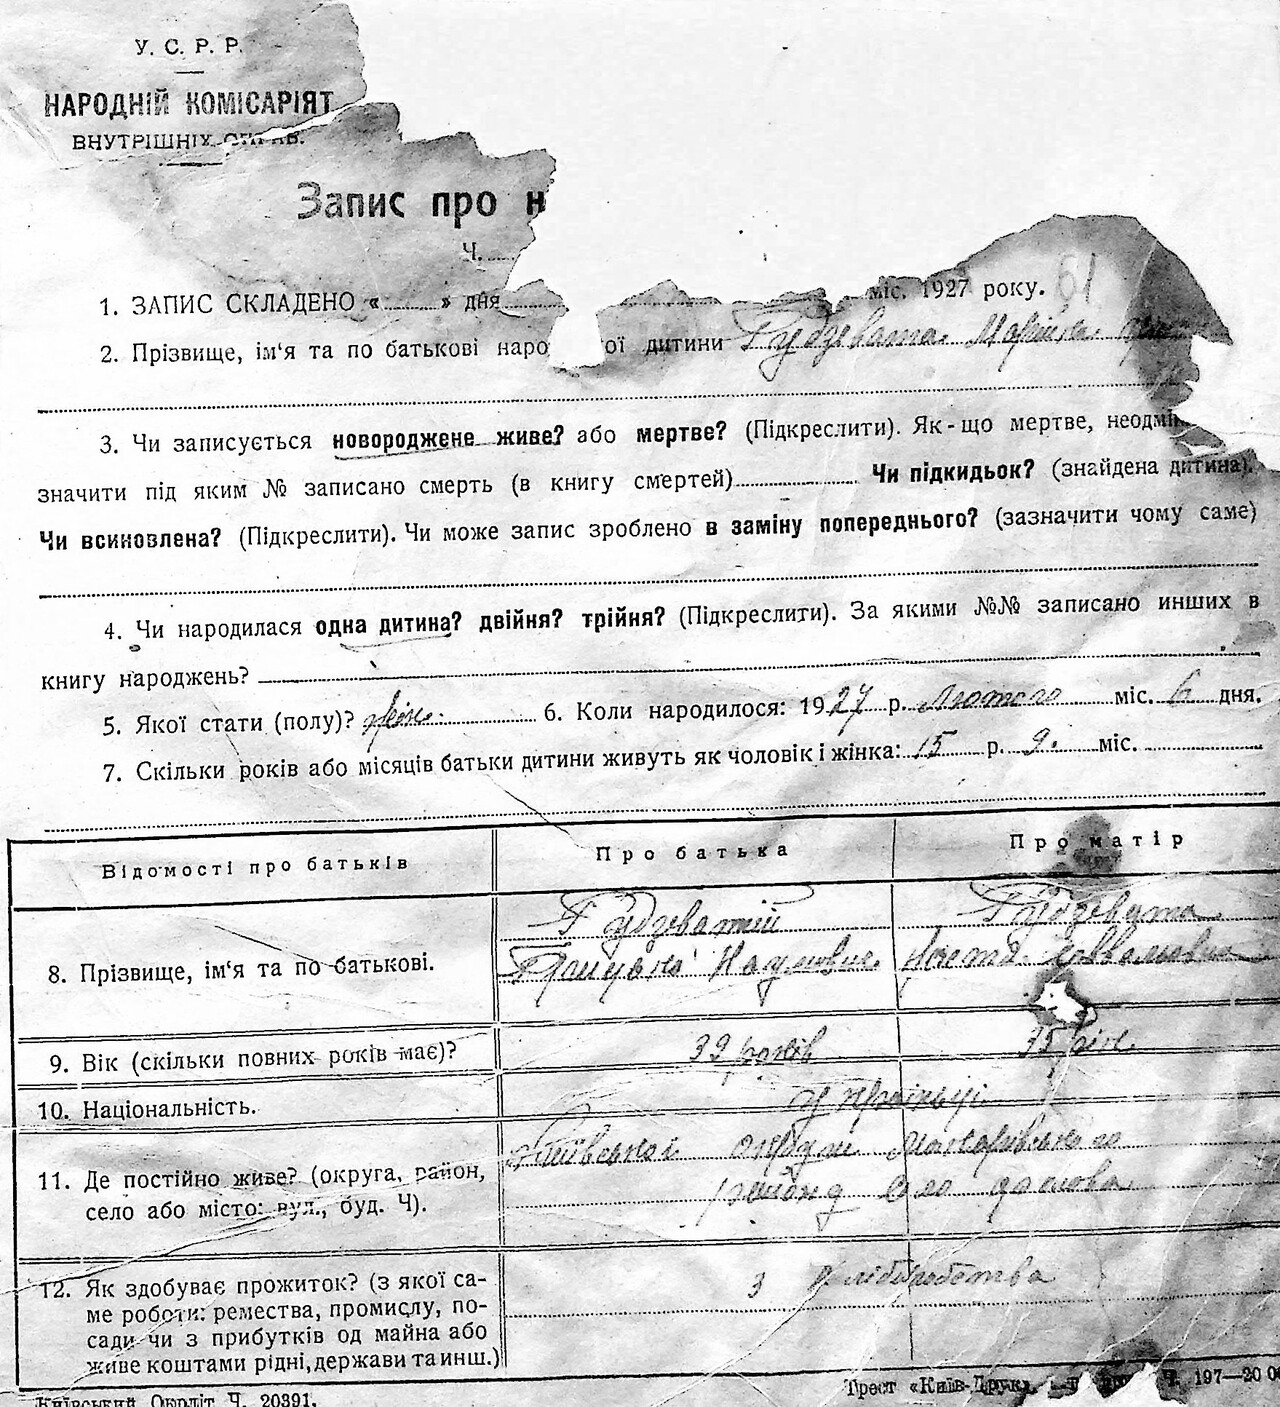 У. С. Р. Р.
НАРОДНІЙ КОМІСАРІЯТ
ВНУТРІШНІХ СПРАВ.
Запис про н
Ч.
1. ЗАПИС СКЛАДЕНО « » дня міс. 1927 року. 61
2. Прізвище, ім'я та по батькові наро ої дитини Гудзевата Марійка
3. Чи записується новороджене живе? або мертве? (Підкреслити). Як-що мертве, неодмін
значити під яким № записано смерть (в книгу смертей) Чи підкидьок? (знайдена дитина).
Чи всиновлена? (Підкреслити). Чи може запис зроблено в заміну попереднього? (зазначити чому саме)
4. Чи народилася одна дитина? двійня? трійня? (Підкреслити). За якими №№ записано инших в
книгу народжень?
5. Якої стати (полу)? жін. 6. Коли народилося: 1927 р. Лютого міс. 6 дня.
7. Скільки років або місяців батьки дитини живуть як чоловік і жінка: 15 р. 9. міс.
Відомості про батьків Про батька Про матір
Гудзеватій Гудзевата
8. Прізвище, ім'я та по батькові. Наумович
9. Вік (скільки повних років має)? 39 років 35 рік
10. Національність. українці
11. Де постійно живе? (округа, район, Київської округи Макарівського
село або місто: вул., буд. Ч). району село
12. Як здобуває прожиток? (з якої са- З хліборобства
ме роботи: ремества, промислу, по-
сади чи з прибутків од майна або
живе коштами рідні, держави та инш.)
Київський Окрліт Ч. 20391. Трест «Київ-Друк», Ч. 197—20 00